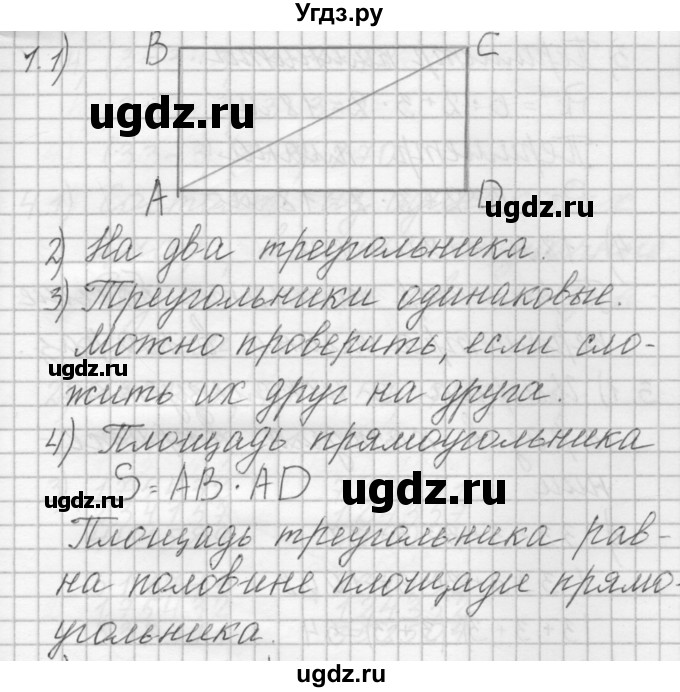 Угдз.ру
1. 1) B C
ugdz.ru
A D
ugdz.ru
2) На два треугольника.
3) Треугольники одинаковые.
Можно проверить, если сло-
ugdz.ru
жить их друг на друга.
4) Площадь прямоугольника
S = AB · AD
ugdz.ru
ugdz.ru
Площадь треугольника рав-
на половине площади прямо-
угольника.
ugdz.ru